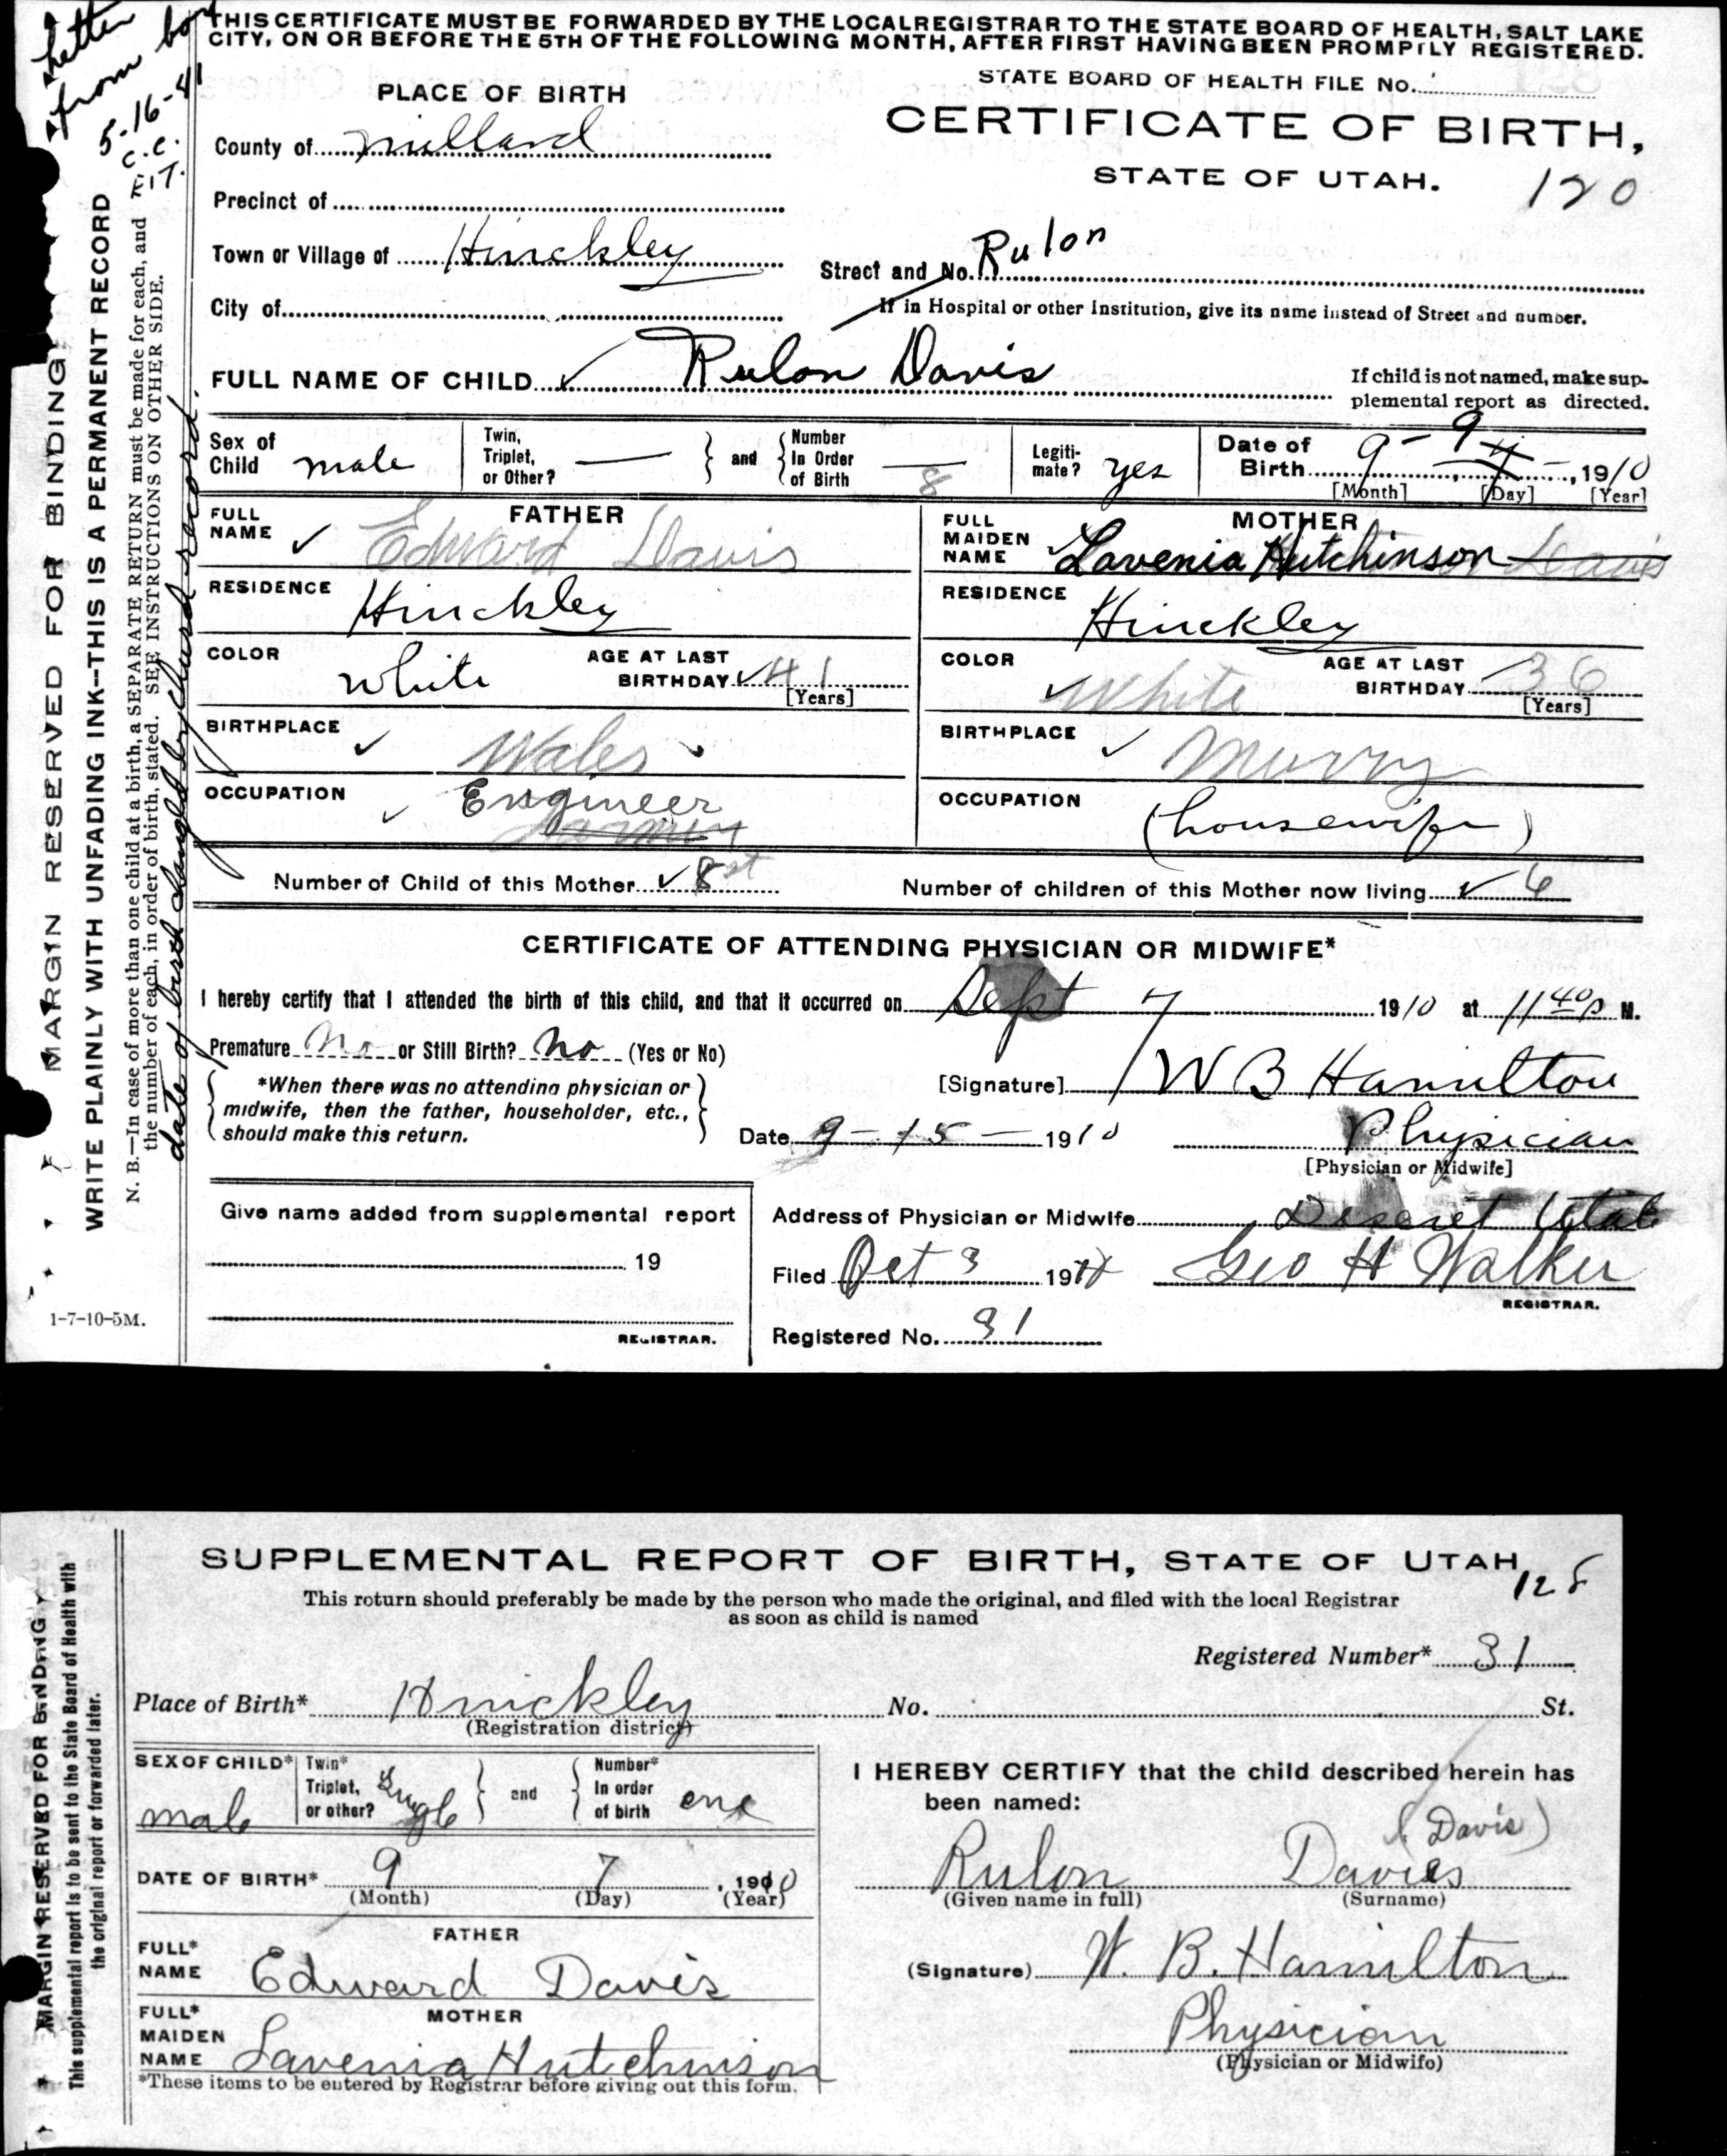 THIS CERTIFICATE MUST BE FORWARDED BY THE LOCAL REGISTRAR TO THE STATE BOARD OF HEALTH, SALT LAKE
CITY, ON OR BEFORE THE 5TH OF THE FOLLOWING MONTH, AFTER FIRST HAVING BEEN PROMPTLY REGISTERED.
Letter
from boy
5-16-41
C.C.
STATE BOARD OF HEALTH FILE No.
PLACE OF BIRTH
CERTIFICATE OF BIRTH,
STATE OF UTAH.
120
County of Millard
Precinct of
Town or Village of Hinckley
Street and No. Rulon
City of
If in Hospital or other Institution, give its name instead of Street and number.
FULL NAME OF CHILD Rulon Davis
If child is not named, make sup-
plemental report as directed.
Sex of Child male
Twin, Triplet, or Other? —
and
Number In Order of Birth — 8
Legiti-mate? yes
Date of Birth 9 - 9 7 -, 1910
[Month] [Day] [Year]
FATHER
FULL NAME Edward Davis
RESIDENCE Hinckley
COLOR White
AGE AT LAST BIRTHDAY 41
[Years]
BIRTHPLACE Wales
OCCUPATION Engineer
Farmer
MOTHER
FULL MAIDEN NAME Lavenia Hutchinson Davis
RESIDENCE Hinckley
COLOR White
AGE AT LAST BIRTHDAY 36
[Years]
BIRTHPLACE Murry
OCCUPATION (housewife)
Number of Child of this Mother 8st
Number of children of this Mother now living 6
CERTIFICATE OF ATTENDING PHYSICIAN OR MIDWIFE*
I hereby certify that I attended the birth of this child, and that it occurred on Sept 7 1910 at 11 40 p M.
Premature No or Still Birth? No (Yes or No)
*When there was no attending physician or
midwife, then the father, householder, etc.,
should make this return.
[Signature] W B Hamilton
Date 9 - 15 - 1910
Physician
[Physician or Midwife]
Give name added from supplemental report
19
REGISTRAR.
Address of Physician or Midwife Deseret Utah
Filed Oct 3 19
Geo H Walker
REGISTRAR.
Registered No. 31
1-7-10-5M.
MARGIN RESERVED FOR BINDING
WRITE PLAINLY WITH UNFADING INK--THIS IS A PERMANENT RECORD
N. B.—In case of more than one child at a birth, a SEPARATE RETURN must be made for each, and
the number of each, in order of birth, stated. SEE INSTRUCTIONS ON OTHER SIDE.
date of birth changed by church record.
SUPPLEMENTAL REPORT OF BIRTH, STATE OF UTAH
This return should preferably be made by the person who made the original, and filed with the local Registrar
as soon as child is named
Registered Number* 31
Place of Birth* Hinckley No. St.
(Registration district)
SEX OF CHILD* male
Twin* Triplet, or other? Single
and
Number* In order of birth one
DATE OF BIRTH* 9 7, 1910
(Month) (Day) (Year)
FATHER
FULL* NAME Edward Davis
MOTHER
FULL* MAIDEN NAME Lavenia Hutchinson
*These items to be entered by Registrar before giving out this form.
I HEREBY CERTIFY that the child described herein has
been named:
(Davis)
Rulon Davies
(Given name in full) (Surname)
(Signature) W. B. Hamilton
Physician
(Physician or Midwife)
MARGIN RESERVED FOR BINDING
This supplemental report is to be sent to the State Board of Health with
the original report or forwarded later.